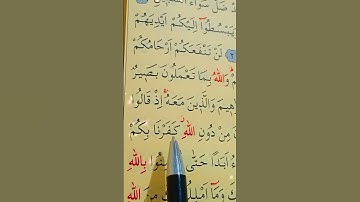 ضَلَّ سَوَٓاءَ السَّب۪يلِ
وَيَبْسُطُٓوا اِلَيْكُمْ اَيْدِيَهُمْ
٢ لَنْ تَنْفَعَكُمْ اَرْحَامُكُمْ
وَاللّٰهُ بِمَا تَعْمَلُونَ بَص۪يرٌ
اِبْرٰه۪يمَ وَالَّذ۪ينَ مَعَهُۚ اِذْ قَالُوا
مِنْ دُونِ اللّٰهِۘ كَفَرْنَا بِكُمْ
اَبَدًا حَتّٰى بِاللّٰهِ
وَمَٓا اَمْلِكُ مِنَ اللّٰهِ